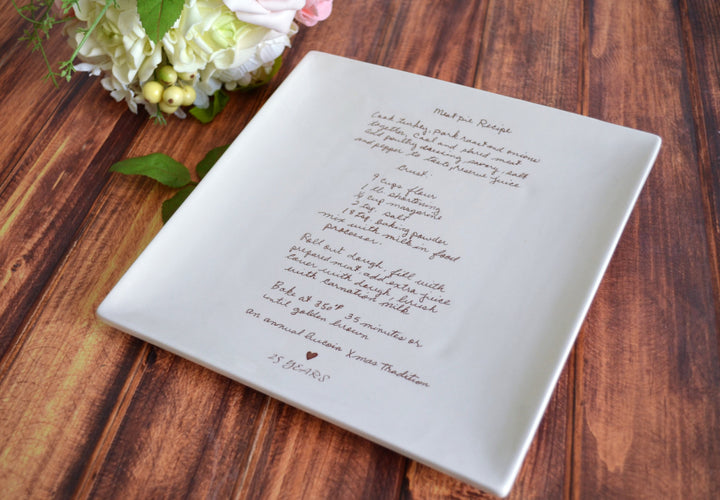 Meat pie Recipe
Cook turkey, pork roast and onions
together, Cool and shred meat
Add poultry dressing, savory, salt
and pepper to taste, reserve juice
Crust:
9 cups flour
1 lb shortening
cup margarine
2 tsp. salt
18 tsp. baking powder
mix with milk in food
processor.
Roll out dough, fill with
prepared meat add extra juice
cover with dough brush
with carnation milk
Bake at 350°F 35 minutes or
until golden brown
an annual Aucoin Xmas Tradition
25 YEARS